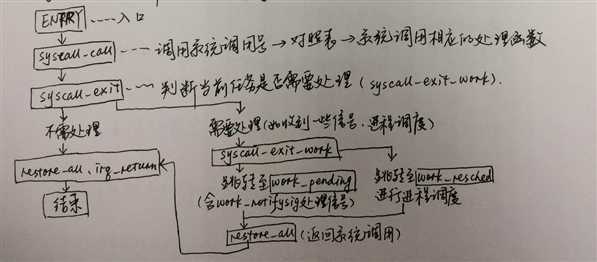 ENTRY ---- 入口
syscall-call --- 调用系统调用号→对照表→系统调用相应的处理函数
syscall-exit --- 判断当前任务是否需要处理(syscall-exit-work).
不需处理
需要处理(如收到一些信号、进程调度)
restore_all、irq_return
syscall-exit-work
结束
跳转至work_pending
(含work_notifysig处理信号)
跳转至work_resched
进行进程调度
restore_all(返回系统调用)